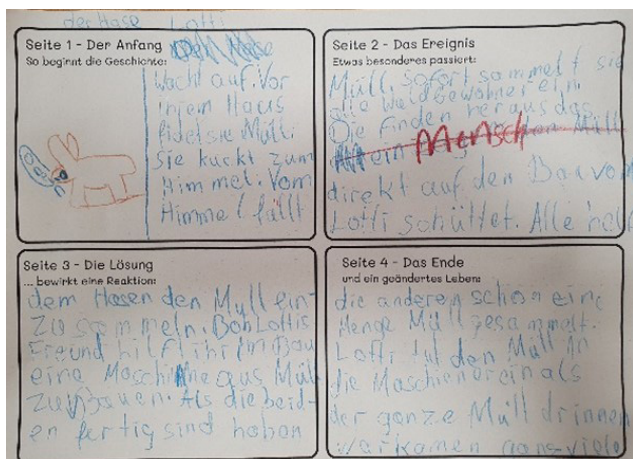 der Hase Lotti
Seite 1 - Der Anfang
So beginnt die Geschichte:
Wacht auf. Vor
ihrem Haus
fidet sie Müll.
Sie kuckt zum
Himmel. Vom
Himmel fällt
Seite 2 - Das Ereignis
Etwas besonderes passiert:
Müll, sofort sammelt sie
alle Waldbewohner ein.
Die finden heraus das
ein Mensch den Müll
direkt auf den Bau vom
Lotti schüttet. Alle helf
Seite 3 - Die Lösung
... bewirkt eine Reaktion:
dem Hasen den Müll ein-
zu sammeln. Bob Lottis
Freund hilf ihr im Bau
eine Maschine aus Müll
zu Bauen. Als die beid-
en fertig sind haben
Seite 4 - Das Ende
und ein geändertes Leben:
die anderen schon eine
Menge Müll gesammelt.
Lotti tut den Müll in
die Maschiene rein als
der ganze Müll drinnen
war kamen gans viele